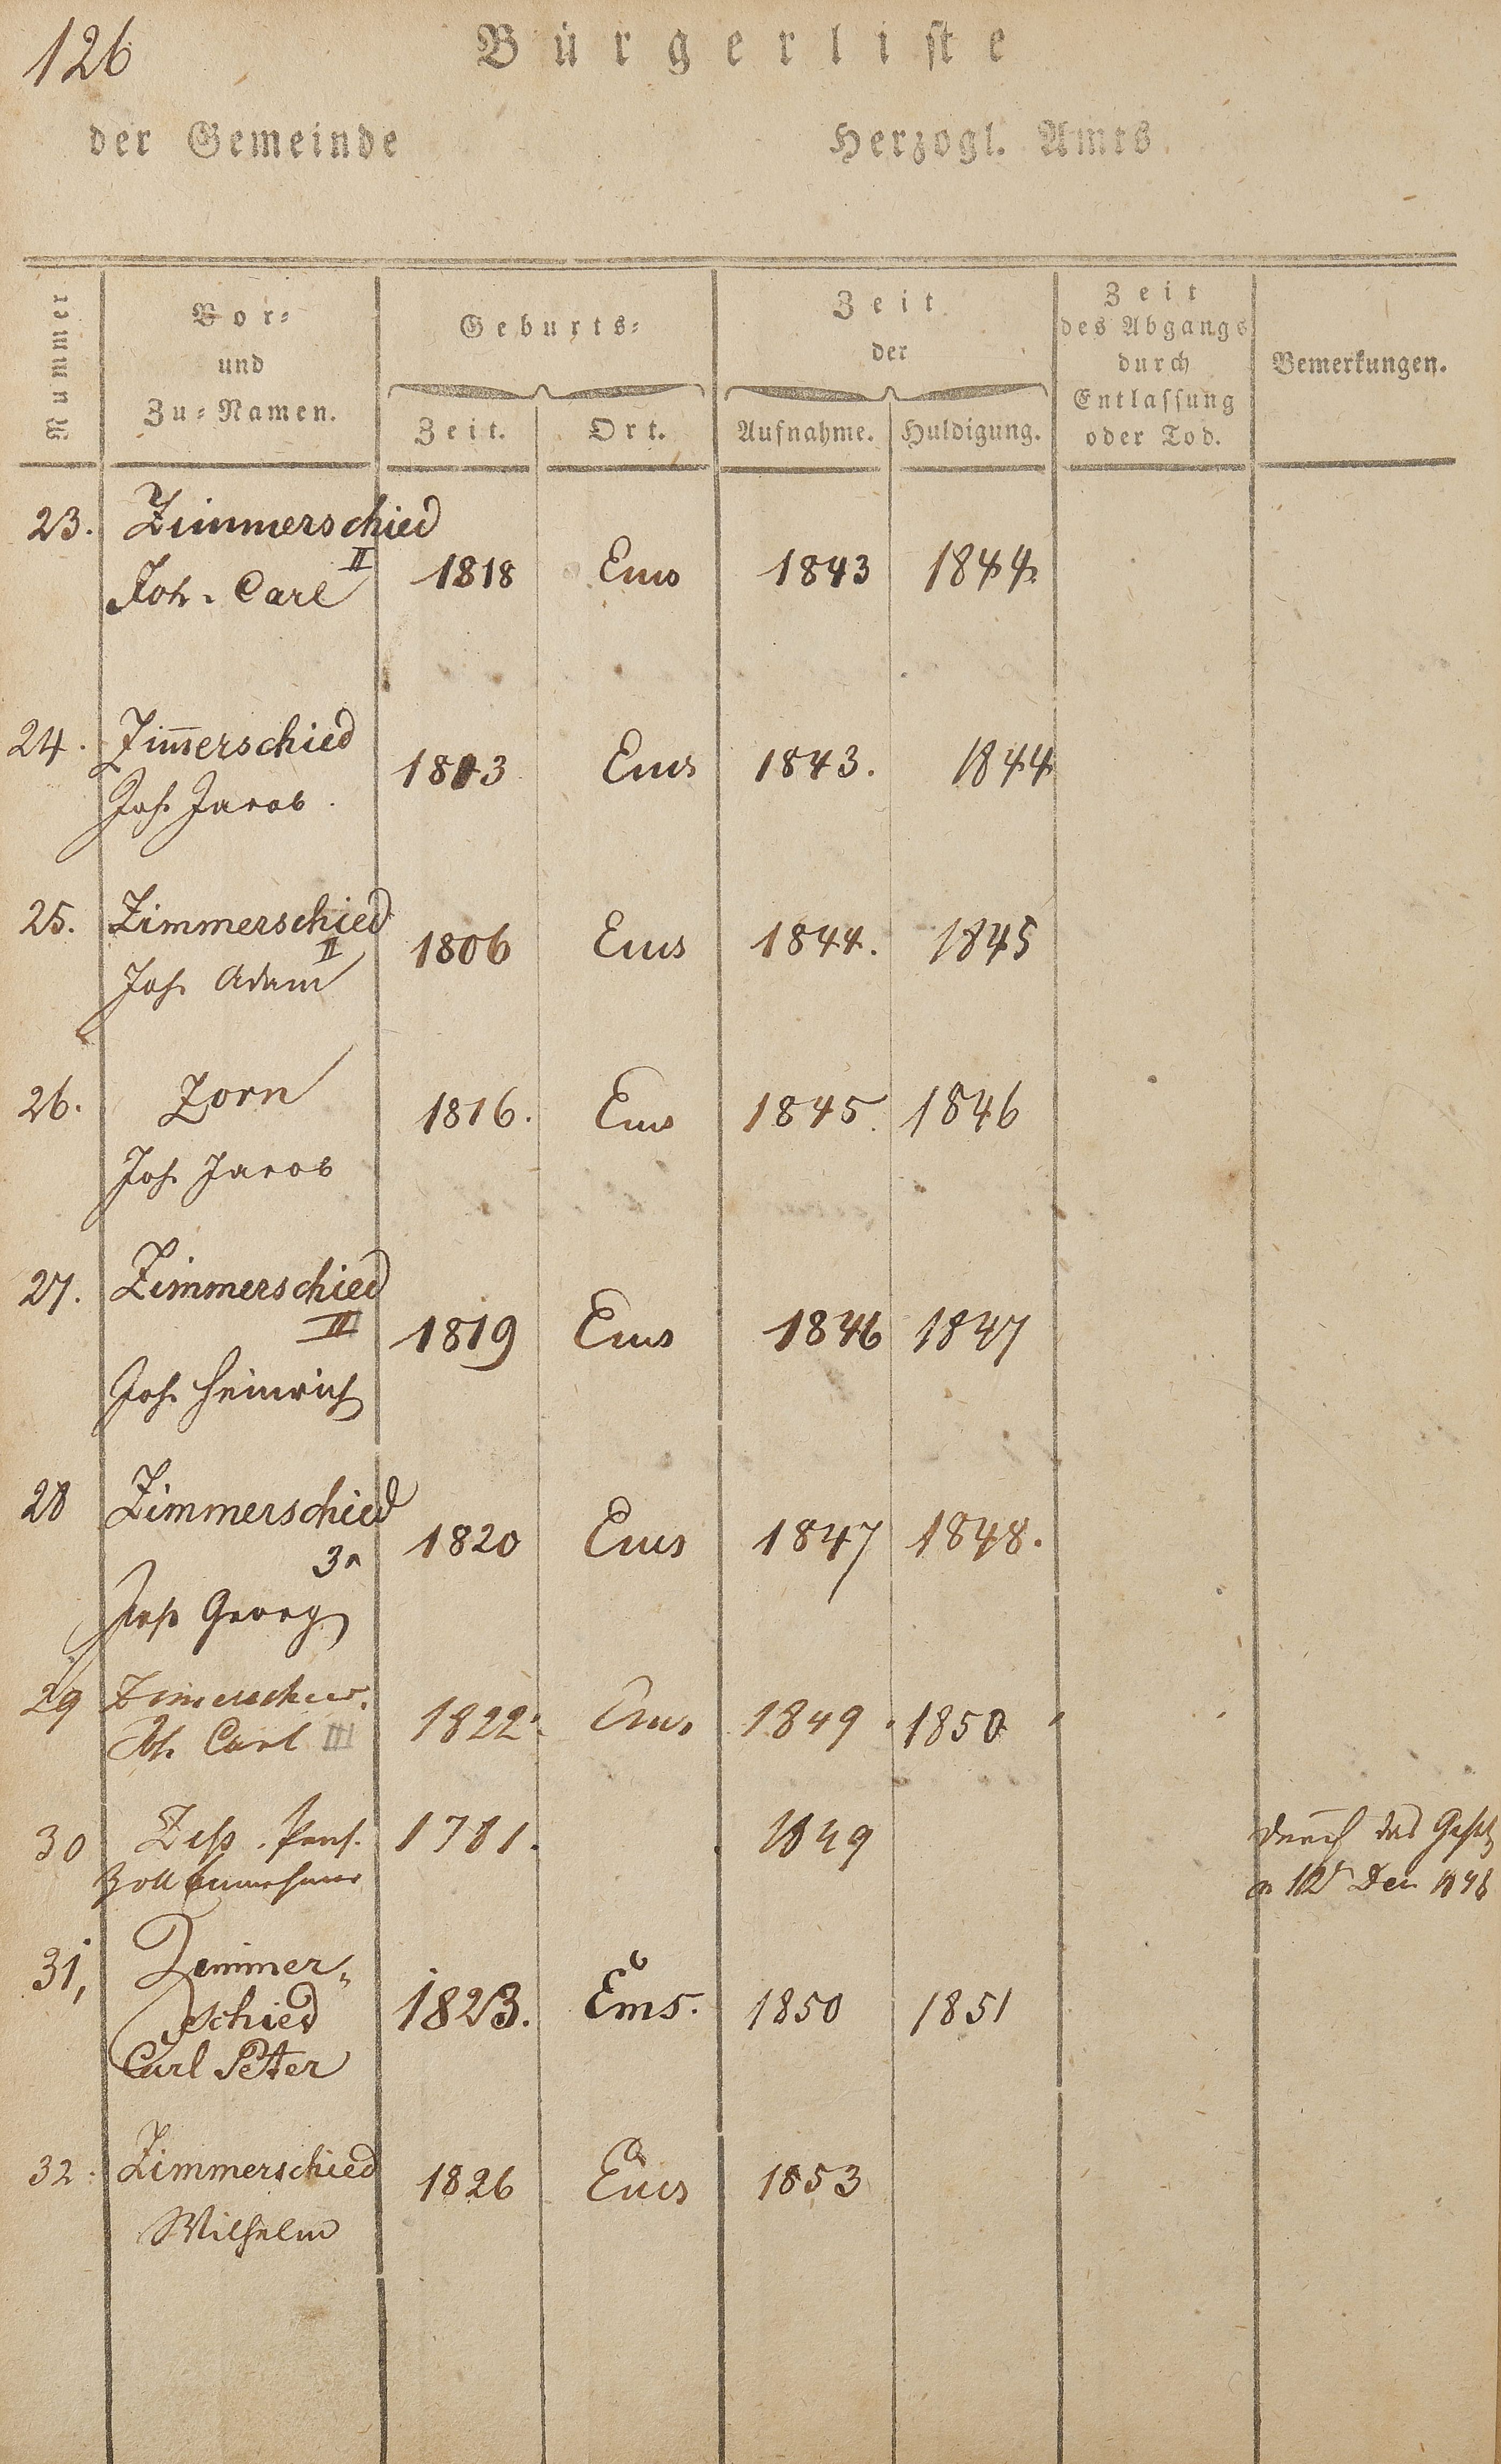 126
Bürgerliste
der Gemeinde Herzogl. Amts
Nummer
Vor- und Zu-Namen.
Geburts-
Zeit. Ort.
Zeit der
Aufnahme. Huldigung.
Zeit des Abgangs durch Entlassung oder Tod.
Bemerkungen.
23. Zimmerschied II
Joh. Carl 1818 Ems 1843 1844.
24. Zim̅erschied
Joh. Jacob. 1813 Ems 1843. 1844
25. Zimmerschied II
Joh. Adam 1806 Ems 1844. 1845
26. Zorn
Joh. Jacob 1816. Ems 1845. 1846
27. Zimmerschied III
Joh. Heinrich 1819 Ems 1846 1847
28 Zimmerschied 3r
Joh. Georg 1820 Ems 1847 1848.
29 Zimerschied.
Joh. Carl III 1822. Ems 1849. 1850
30 Pens. 1781. 1849 durch das Gesetz
Zolleinnehmer 12r Dec 1848
31, Zimmer-
schied
Carl Peter 1823. Ems. 1850 1851
32. Zimmerschied
Wilhelm 1826 Ems 1853